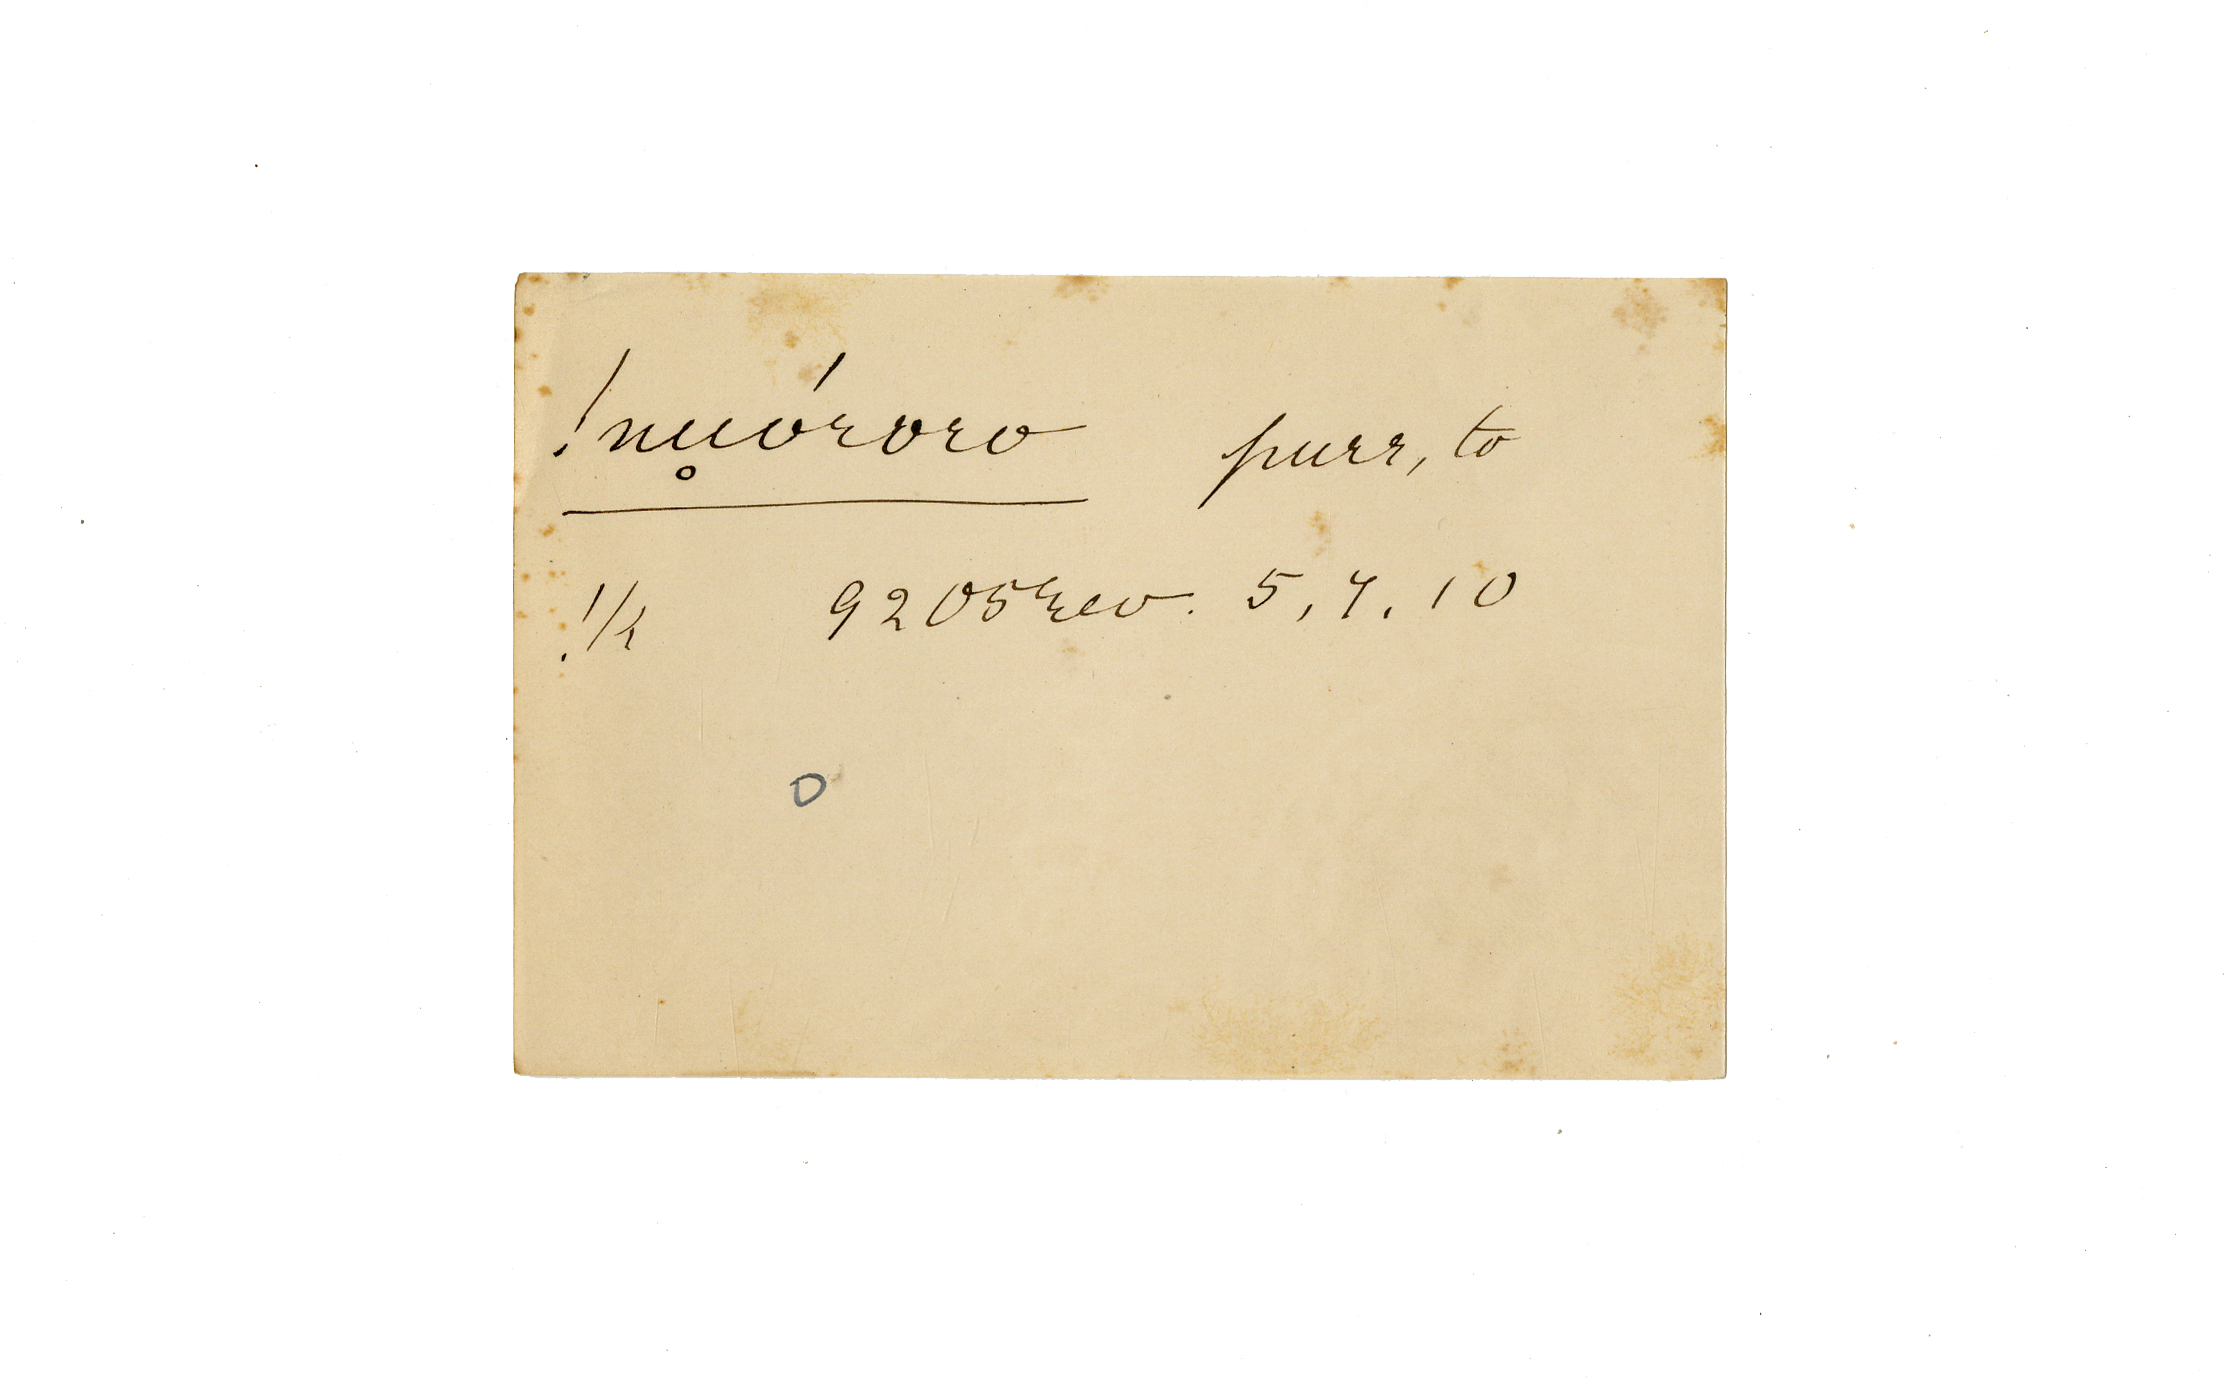 !nu̥óroro purr, to
!/k 9205 rev. 5, 7. 10
O